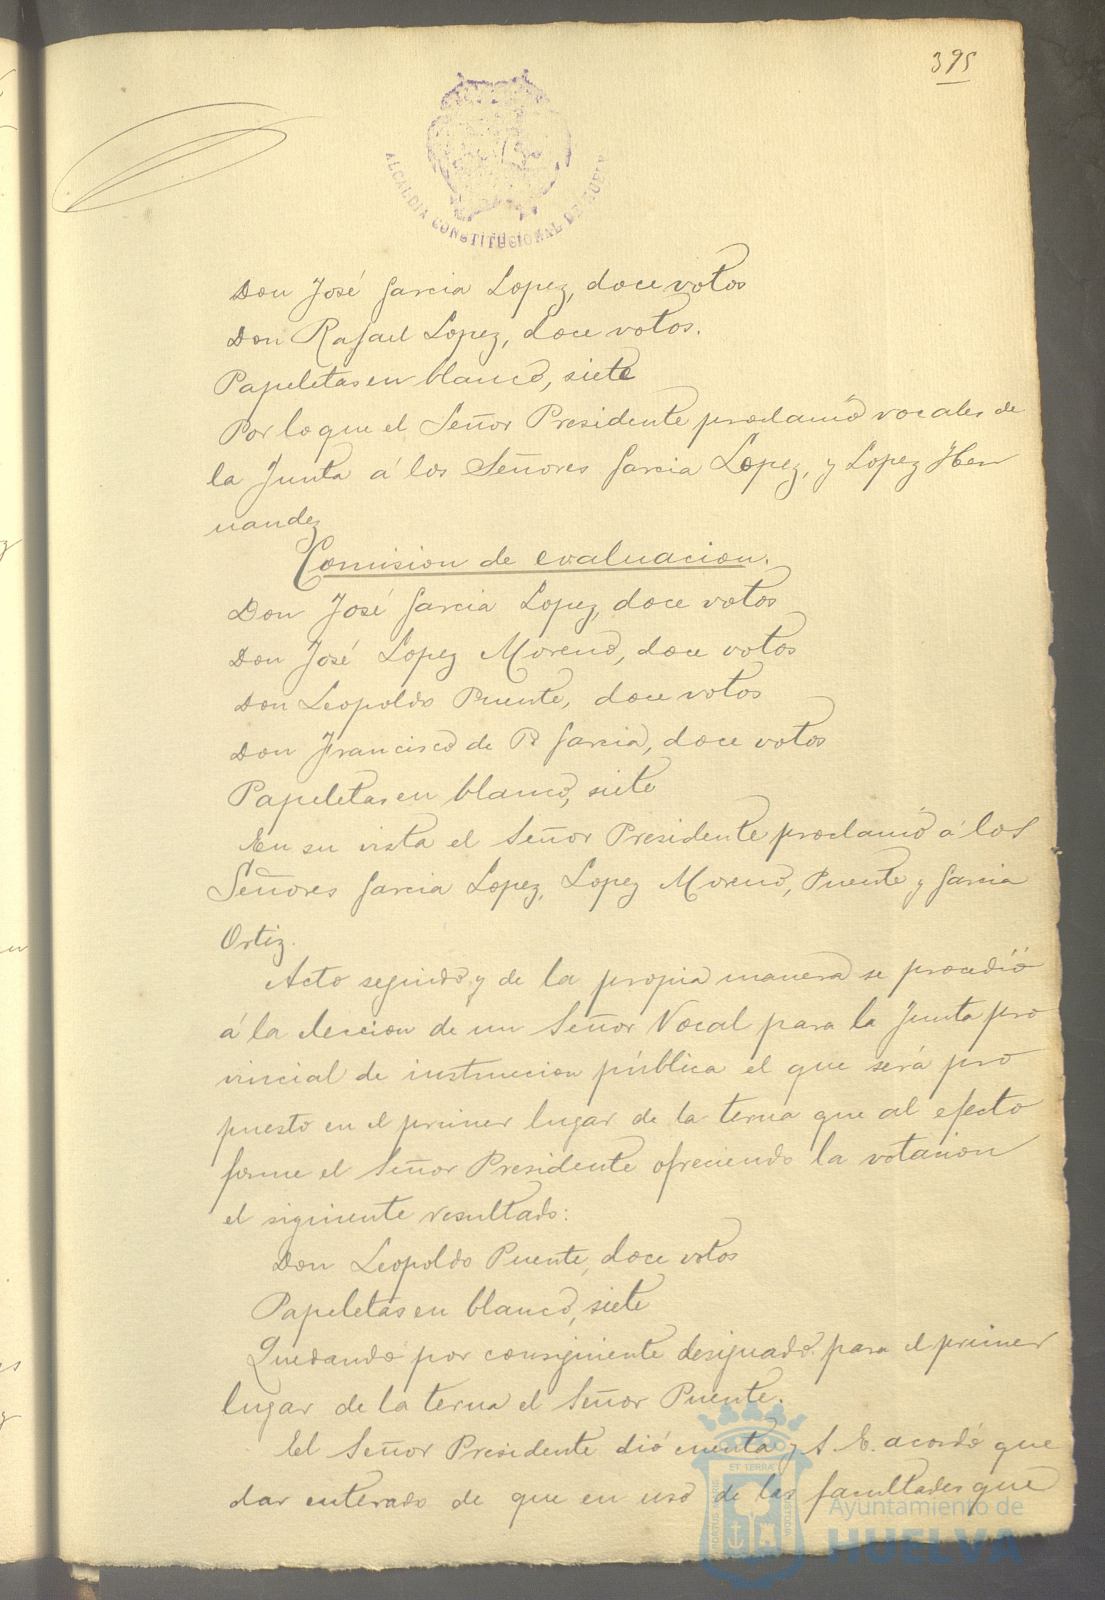 395
ALCALDIA CONSTITUCIONAL DE
Don José Garcia Lopez, doce votos
Don Rafael Lopez, doce votos.
Papeletas en blanco, siete
Por lo que el Señor Presidente proclamó vocales de
la Junta á los Señores Garcia Lopez, y Lopez Her
nandez
Comision de evaluacion.
Don José Garcia Lopez, doce votos
Don José Lopez Moreno, doce votos
Don Leopoldo Puente, doce votos
Don Francisco de P. Garcia, doce votos
Papeletas en blanco, siete
En su vista el Señor Presidente proclamó á los
Señores Garcia Lopez, Lopez Moreno, Puente y Garcia
Ortiz.
Acto seguido y de la propia manera se procedió
á la eleccion de un Señor Vocal para la Junta pro
vincial de instruccion pública el que será pro
puesto en el primer lugar de la terna que al efecto
forme el Señor Presidente ofreciendo la votacion
el siguiente resultado:
Don Leopoldo Puente, doce votos
Papeletas en blanco, siete
Quedando por consiguiente designado para el primer
lugar de la terna el Señor Puente.
El Señor Presidente dió cuenta y S. E. acordó que
dar enterado de que en uso de las facultades que
Ayuntamiento de
HUELVA